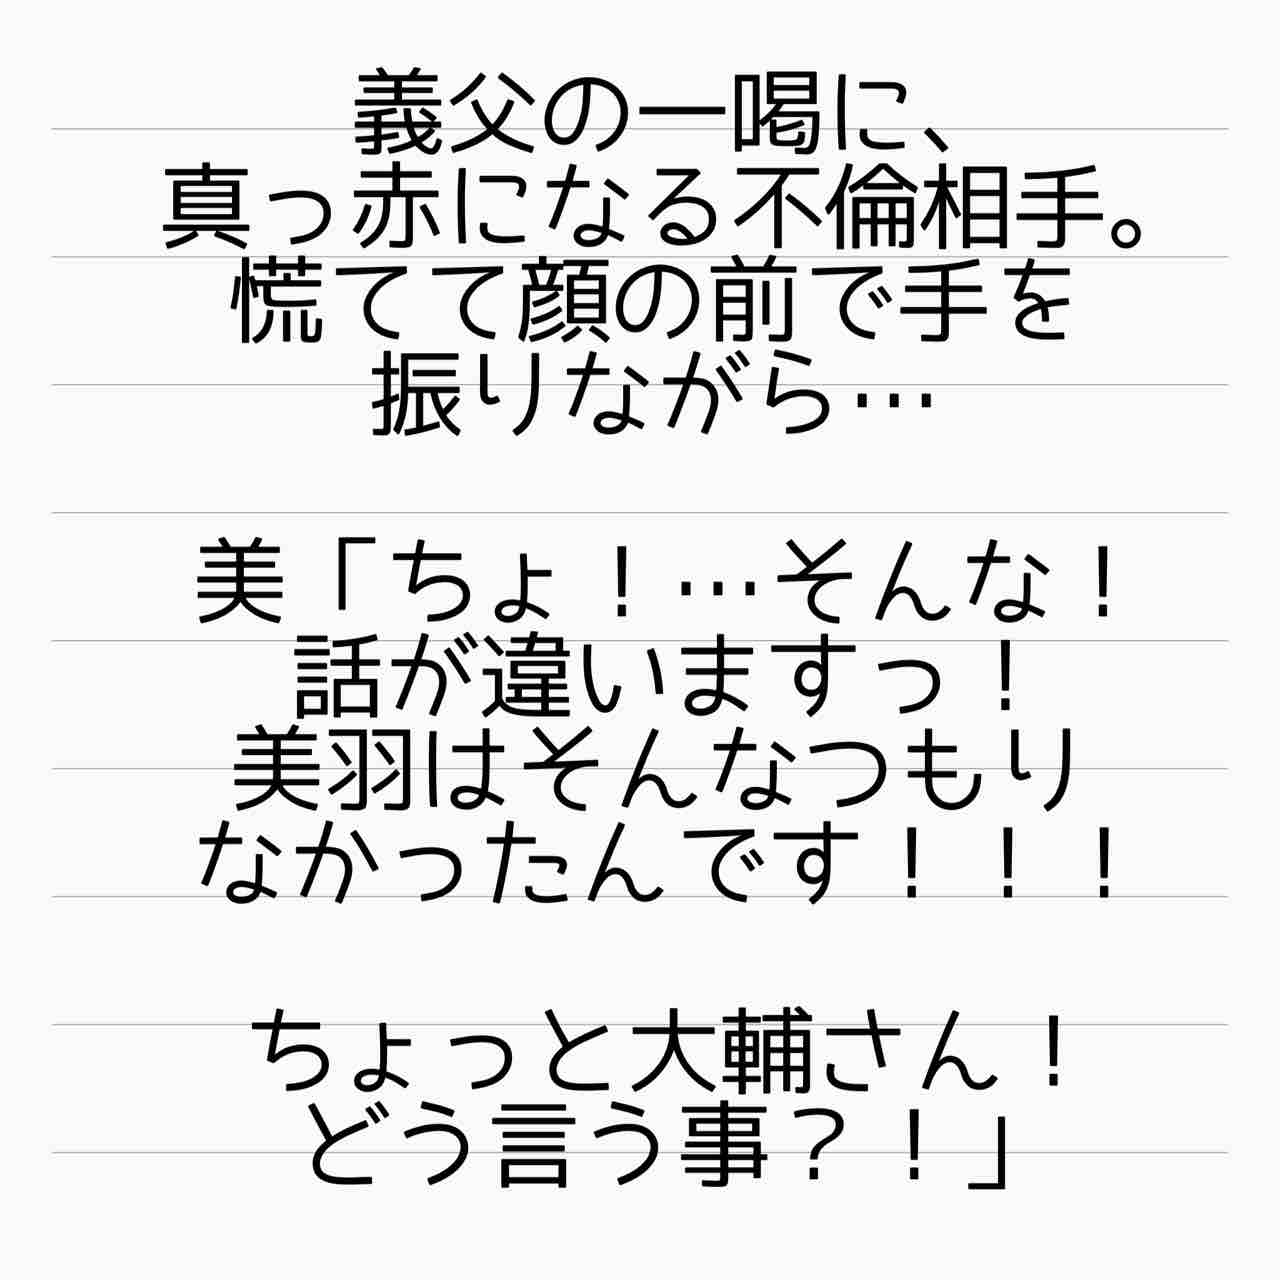 義父の一喝に、
真っ赤になる不倫相手。
慌てて顔の前で手を
振りながら…
美「ちょ！…そんな！
話が違いますっ！
美羽はそんなつもり
なかったんです！！！
ちょっと大輔さん！
どう言う事？！」